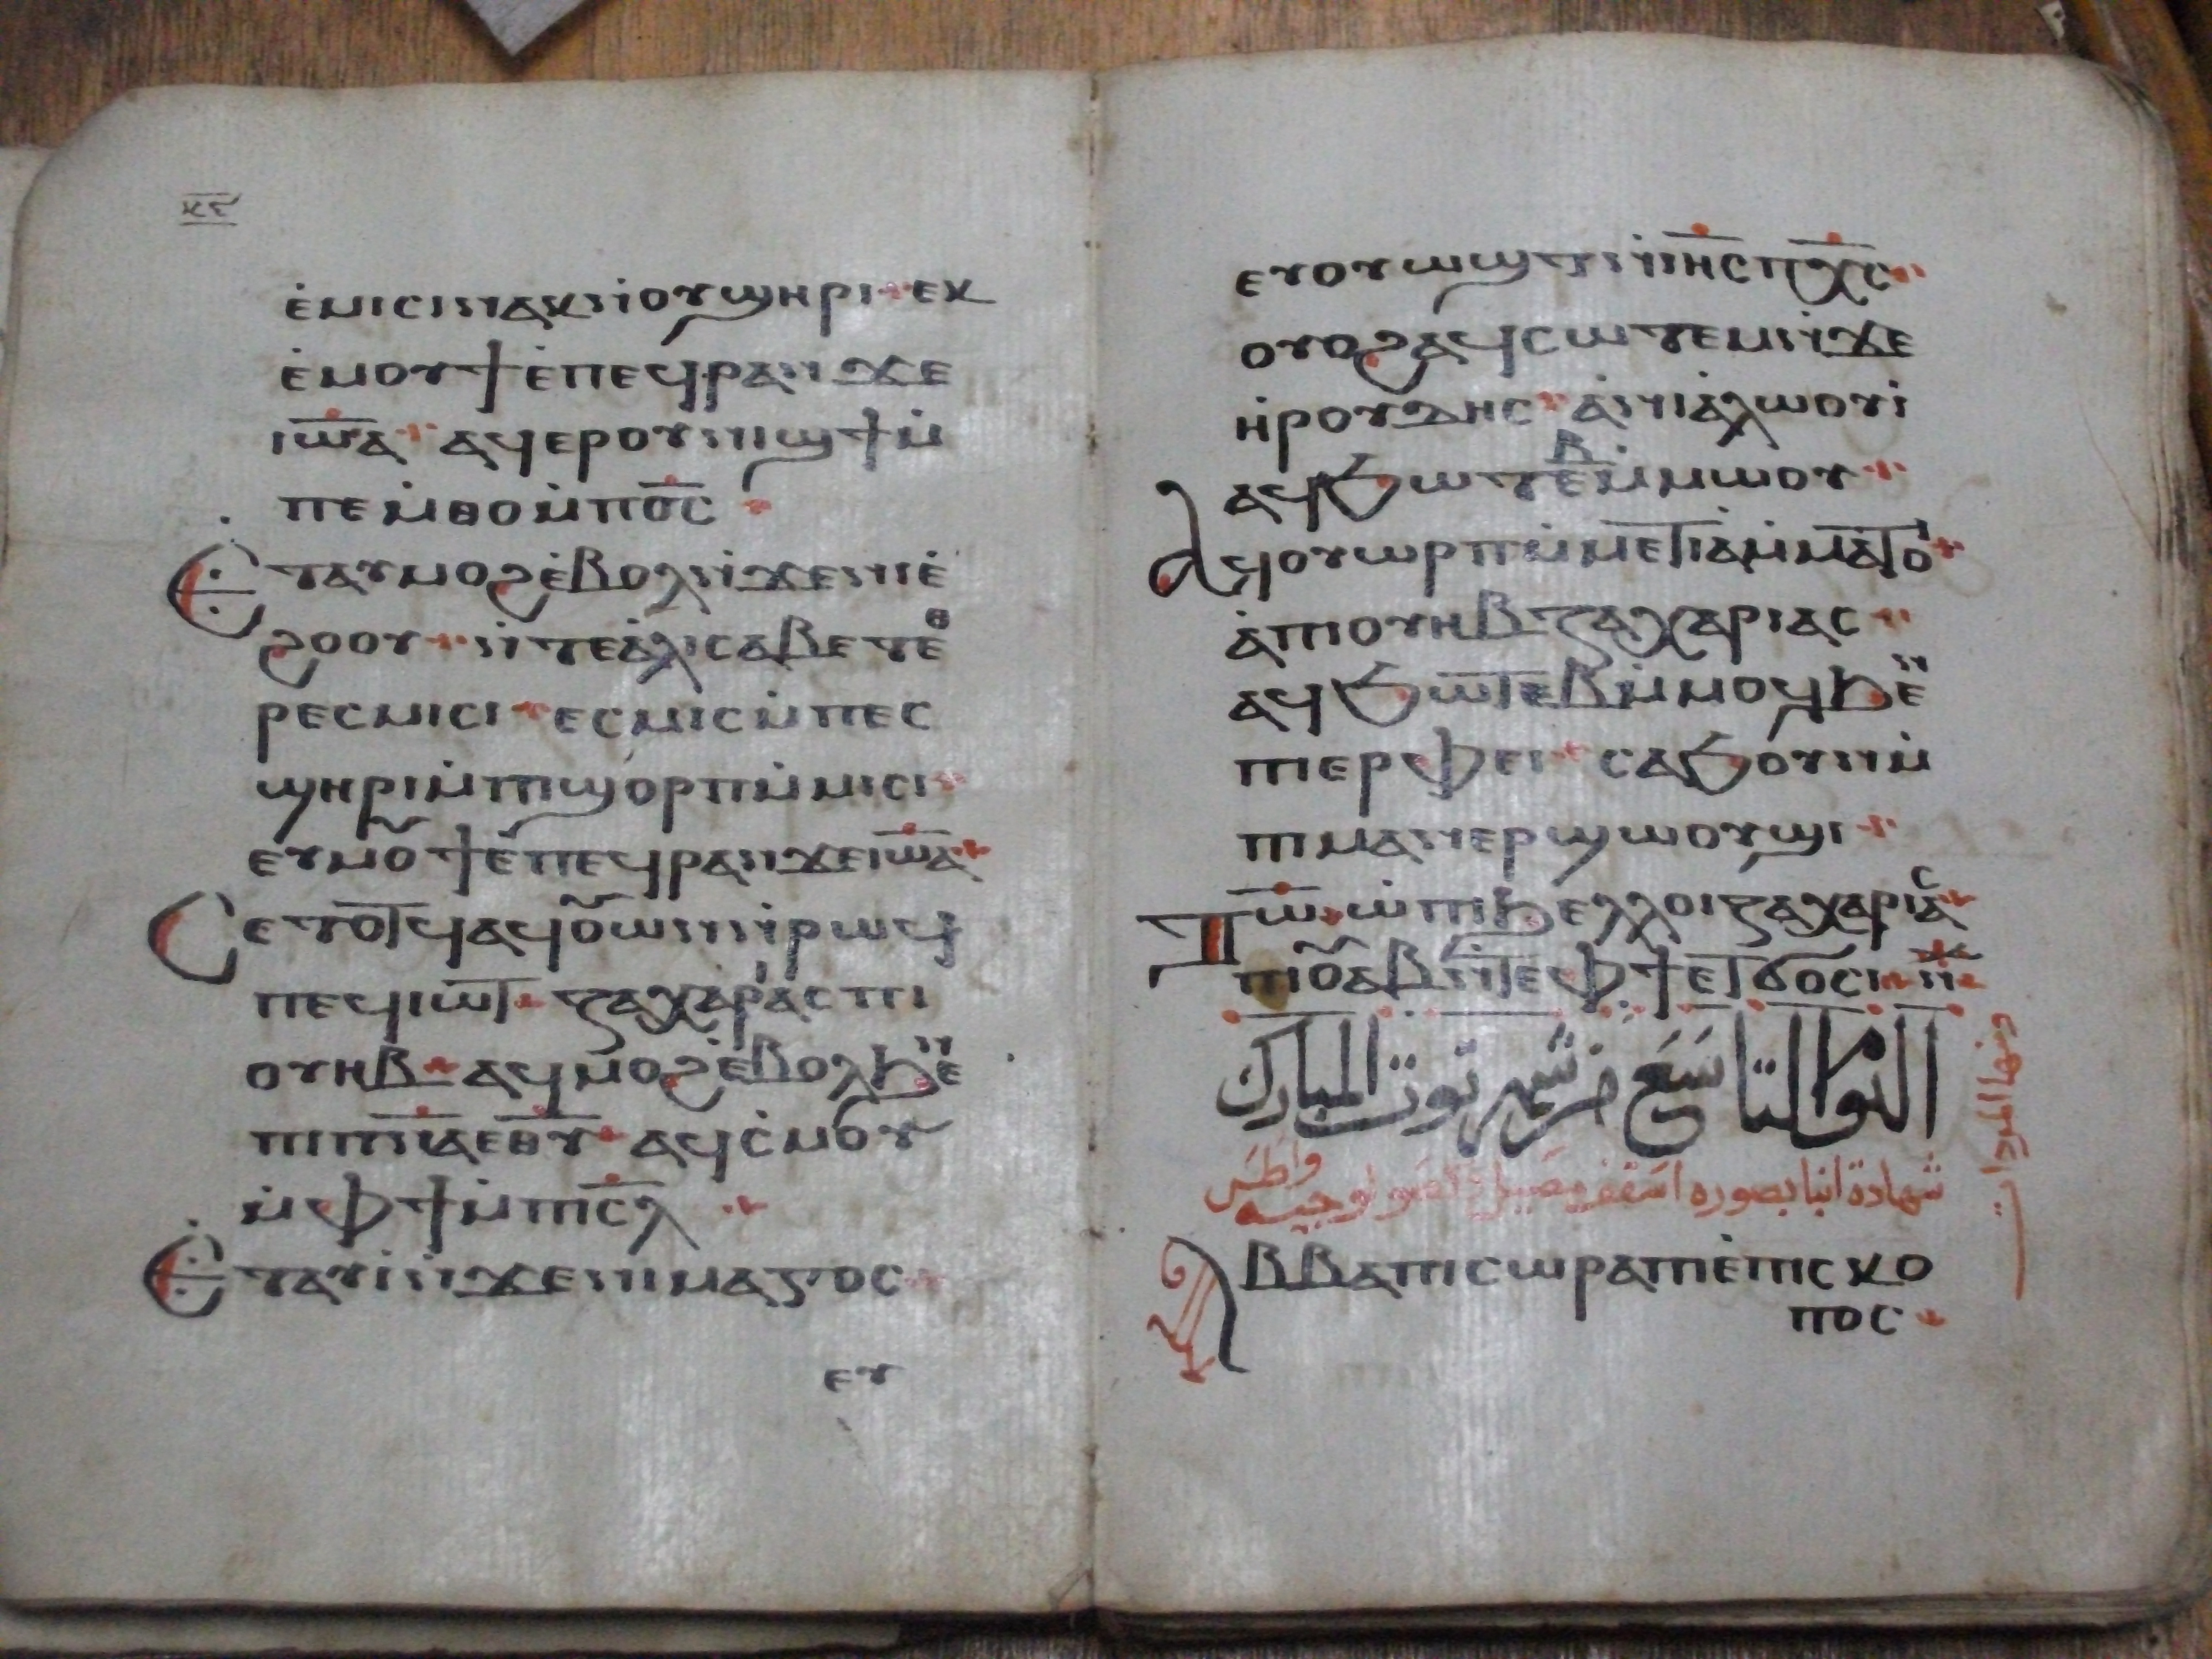 ⲕⲋ
ⲉ̇ⲙⲓⲥⲓⲛⲁⲕⲛ̇ⲟⲩϣⲏⲣⲓ ⲉⲕ
ⲉ̇ⲙⲟⲩϯⲉ̇ⲡⲉϥⲣⲁⲛϫⲉ
ⲓⲱ̅ⲁ ⲁϥⲉⲣⲟⲩⲛⲓϣϯⲙ̇
ⲡⲉⲙ̇ⲑⲟⲙ̇ⲡⲟ̅ⲥ
Ⲉⲧⲁⲩⲙⲟϩⲉ̇ⲃⲟⲗⲛ̇ϫⲉⲛⲓⲉ̇
ϩⲟⲟⲩ ⲛ̇ⲧⲉⲁ̇ⲗⲓⲥⲁⲃⲉⲧⲉⲑ
ⲣⲉⲥⲙⲓⲥⲓ ⲉⲥⲙⲓⲥⲙ̇ⲡⲉⲥ
ϣⲏⲣⲓⲙ̇ⲡⲓϣⲟⲣⲡⲙ̇ⲙⲓⲥⲓ
ⲉⲩⲙⲟ̃ϯⲉ̇ⲡⲉϥⲣⲁⲛϫⲉⲓⲱ̅ⲁ
Ⲥⲉⲧⲟ̅ⲧϥⲁϥⲟ̃ⲱⲛⲛ̇ⲣⲱϥ
ⲡⲉϥⲓⲱ̅ⲧ ⲍⲁⲭⲁⲣⲓⲁⲥ ⲡⲓ
ⲟⲩⲏⲃ ⲁϥⲙⲟϩⲉ̇ⲃⲟⲗϧⲉⲛ
ⲡⲓⲡ̅ⲛ̅ⲁⲉ̅ⲑ̅ⲩ ⲁϥⲥ̇ⲙⲟⲩ
ⲙ̇ⲫϯⲙ̇ⲡⲓⲥ̅ⲗ
Ⲉⲧⲁⲩⲓ̇ⲛ̇ϫⲉⲛⲓⲙⲁⲅⲟⲥ
ⲉⲩ
ⲉⲩⲟⲩⲱϣⲧⲛ̇ⲓⲏ̅ⲥⲡⲭ̅ⲥ
ⲟⲩⲟϩⲁϥⲥⲱⲧⲉⲙⲛ̇ϫⲉ
ⲏ̇ⲣⲟⲩⲇⲏⲥ ⲁ̇ⲛⲓⲁ̇ⲗⲱⲟⲩⲓ̇
ⲁϥϧⲱⲧⲉⲃⲙ̇ⲙⲱⲟⲩ
Ⲁϥⲟⲩⲱⲣⲡⲙ̇ⲙⲉⲧⲓⲁ̇ⲙ̇ⲙⲁⲧⲟⲓ
ⲁ̇ⲡⲓⲟⲩⲏⲃⲍⲁⲭⲁⲣⲓⲁⲥ
ⲁϥϧⲱⲧⲉⲃⲙ̇ⲙⲟϥϧⲉⲛ
ⲡⲓⲉⲣⲫⲉⲓ ⲥⲁϧⲟⲩⲛⲙ̇
ⲡⲓⲙⲁⲛⲉⲣϣⲱⲟⲩϣⲓ
Ⲧⲱ̅ ⲱ̇ⲡⲓϧⲉⲗⲗⲟⲓⲍⲁⲭⲁⲣⲓⲁⲥ
ⲡⲓⲟ̃ⲁⲃⲛ̇ⲧⲉⲫϯⲉⲧϭⲟⲥⲓ ⲛ̇
اليوم التاسع من شهر توت المبارك
شهادة انبا بصوره اسقف مصيل
Ⲁⲃⲃⲁⲡⲓⲥⲱⲣⲁⲡⲓⲉ̇ⲡⲓⲥⲕⲟ
ⲡⲟⲥ